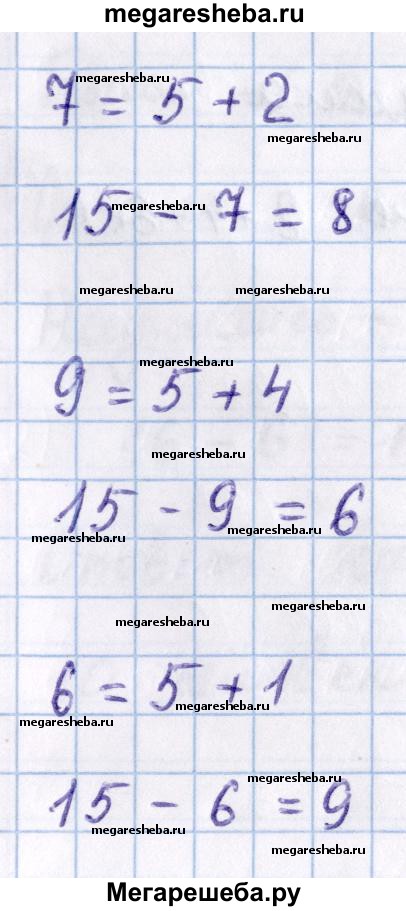 megaresheba.ru
megaresheba.ru
7 = 5 + 2
megaresheba.ru
megaresheba.ru
15 - 7 = 8
megaresheba.ru megaresheba.ru
megaresheba.ru
9 = 5 + 4
megaresheba.ru
15 - 9 = 6
megaresheba.ru
megaresheba.ru
megaresheba.ru
megaresheba.ru
6 = 5 + 1
megaresheba.ru
megaresheba.ru
megaresheba.ru
15 - 6 = 9
megaresheba.ru
megaresheba.ru
Мегарешеба.ру